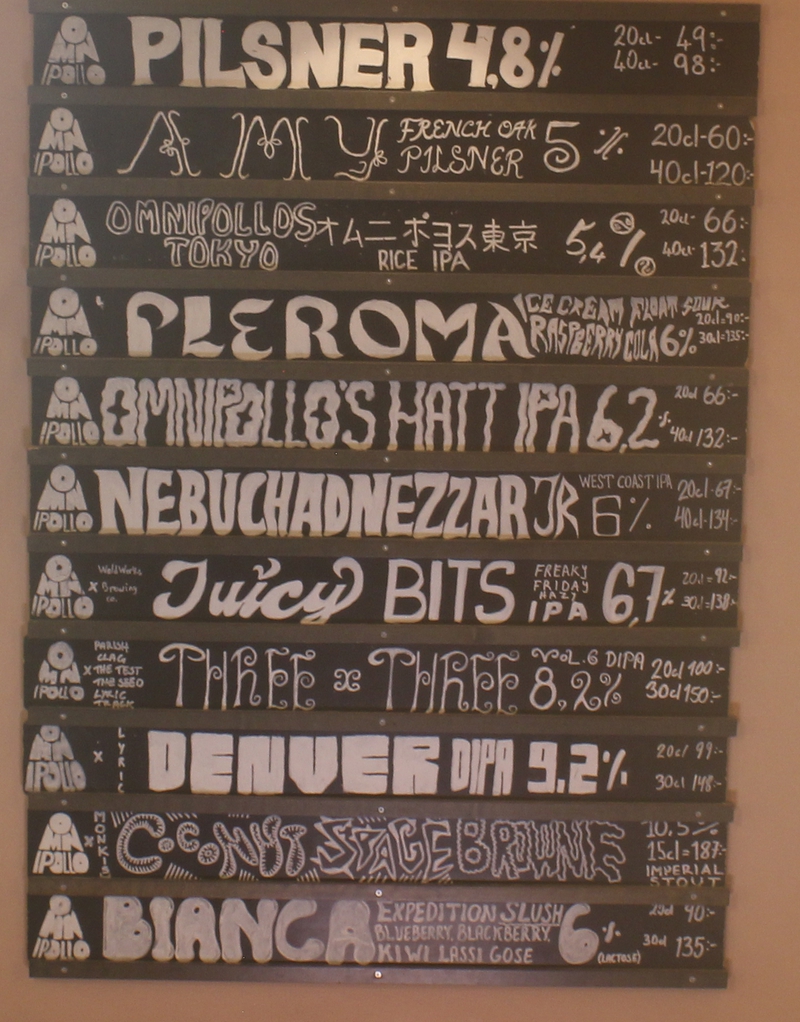 OMNIPOLLO PILSNER 4,8% 20cl- 49:-
40cl- 98:-
OMNIPOLLO AMY FRENCH OAK PILSNER 5% 20cl-60:-
40cl-120:-
OMNIPOLLO OMNIPOLLOS TOKYO オムニポヨス東京 RICE IPA 5,4% 20cl- 66:-
40cl- 132:-
OMNIPOLLO PLEROMA ICE CREAM FLOAT SOUR RASPBERRY COLA 6% 20cl=90:-
30cl=135:-
OMNIPOLLO OMNIPOLLO'S HATT IPA 6,2% 20cl 66:-
40cl 132:-
OMNIPOLLO NEBUCHADNEZZAR JR WEST COAST IPA 6% 20cl-67:-
40cl-134:-
OMNIPOLLO x WeldWorks Brewing co. Juicy BITS FREAKY FRIDAY HAZY IPA 6,7% 20cl=92:-
30cl=138:-
OMNIPOLLO x PARISH CLAG THE TEST THE SEED LYRIC TRACK THREE x THREE VOL.6 DIPA 8,2% 20cl 100:-
30cl 150:-
OMNIPOLLO x LYRIC DENVER DIPA 9.2% 20cl 99:-
30cl 148:-
OMNIPOLLO x MONKIS COCONUT SPACE BROWNIE 10.5%
15cl=187:-
IMPERIAL STOUT
OMNIPOLLO BIANCA EXPEDITION SLUSH BLUEBERRY, BLACKBERRY, KIWI LASSI GOSE 6% (LACTOSE) 20cl 90:-
30cl 135:-